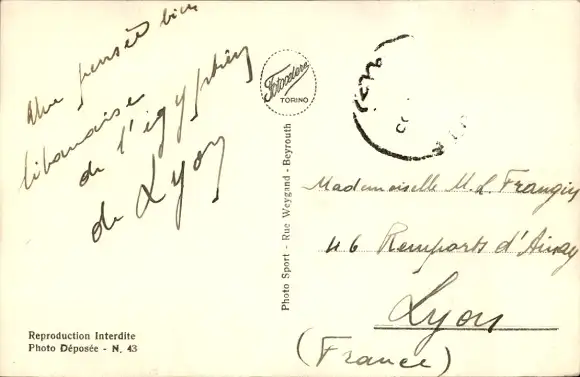 Une pensée bien
libanaise
de l'égyptien
de Lyon
Fotocelere
TORINO
Photo Sport - Rue Weygand - Beyrouth
Mademoiselle M. L.
46 Remparts d'Ainay
Lyon
(France)
Reproduction Interdite
Photo Déposée - N. 43